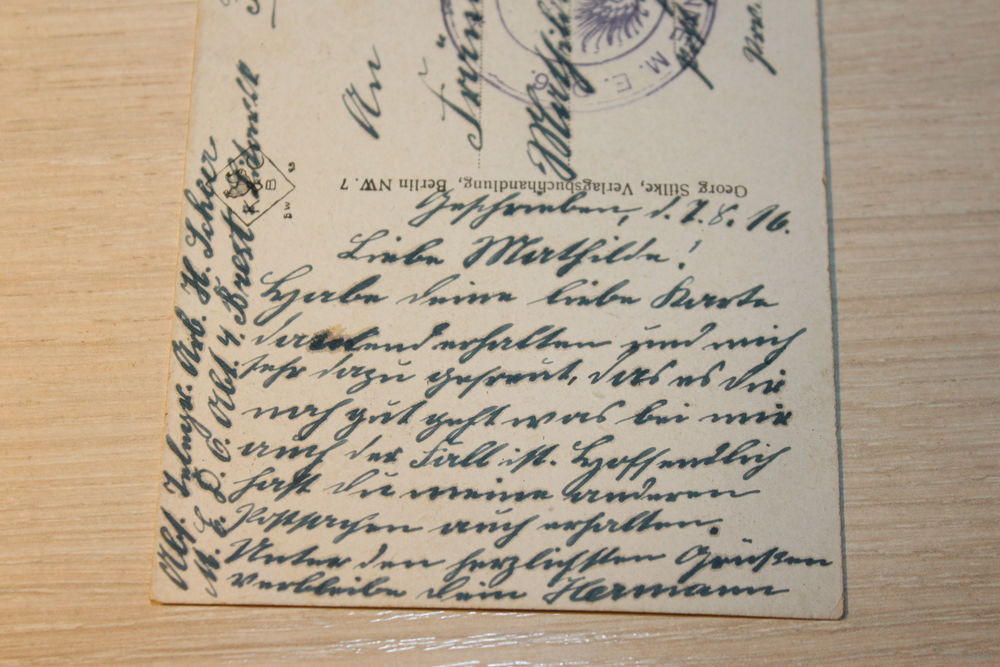 An
Mathilde
M. E. D. 6.
Georg Stilke, Verlagsbuchhandlung, Berlin NW. 7
Geschrieben, d. 7.8.16.
Liebe Mathilde!
Habe deine liebe Karte
dankend erhalten und mich
sehr dazu gefreut, das es dir
noch gut geht was bei mir
auch der Fall ist. Hoffendlich
hast du meine anderen
Postsachen auch erhalten.
Unter den herzlichsten Grüßen
verbleibe dein Hermann
Abs. Telegr. Arb. H. Scheer
M. E. D. 6. Abt. 4. Brest